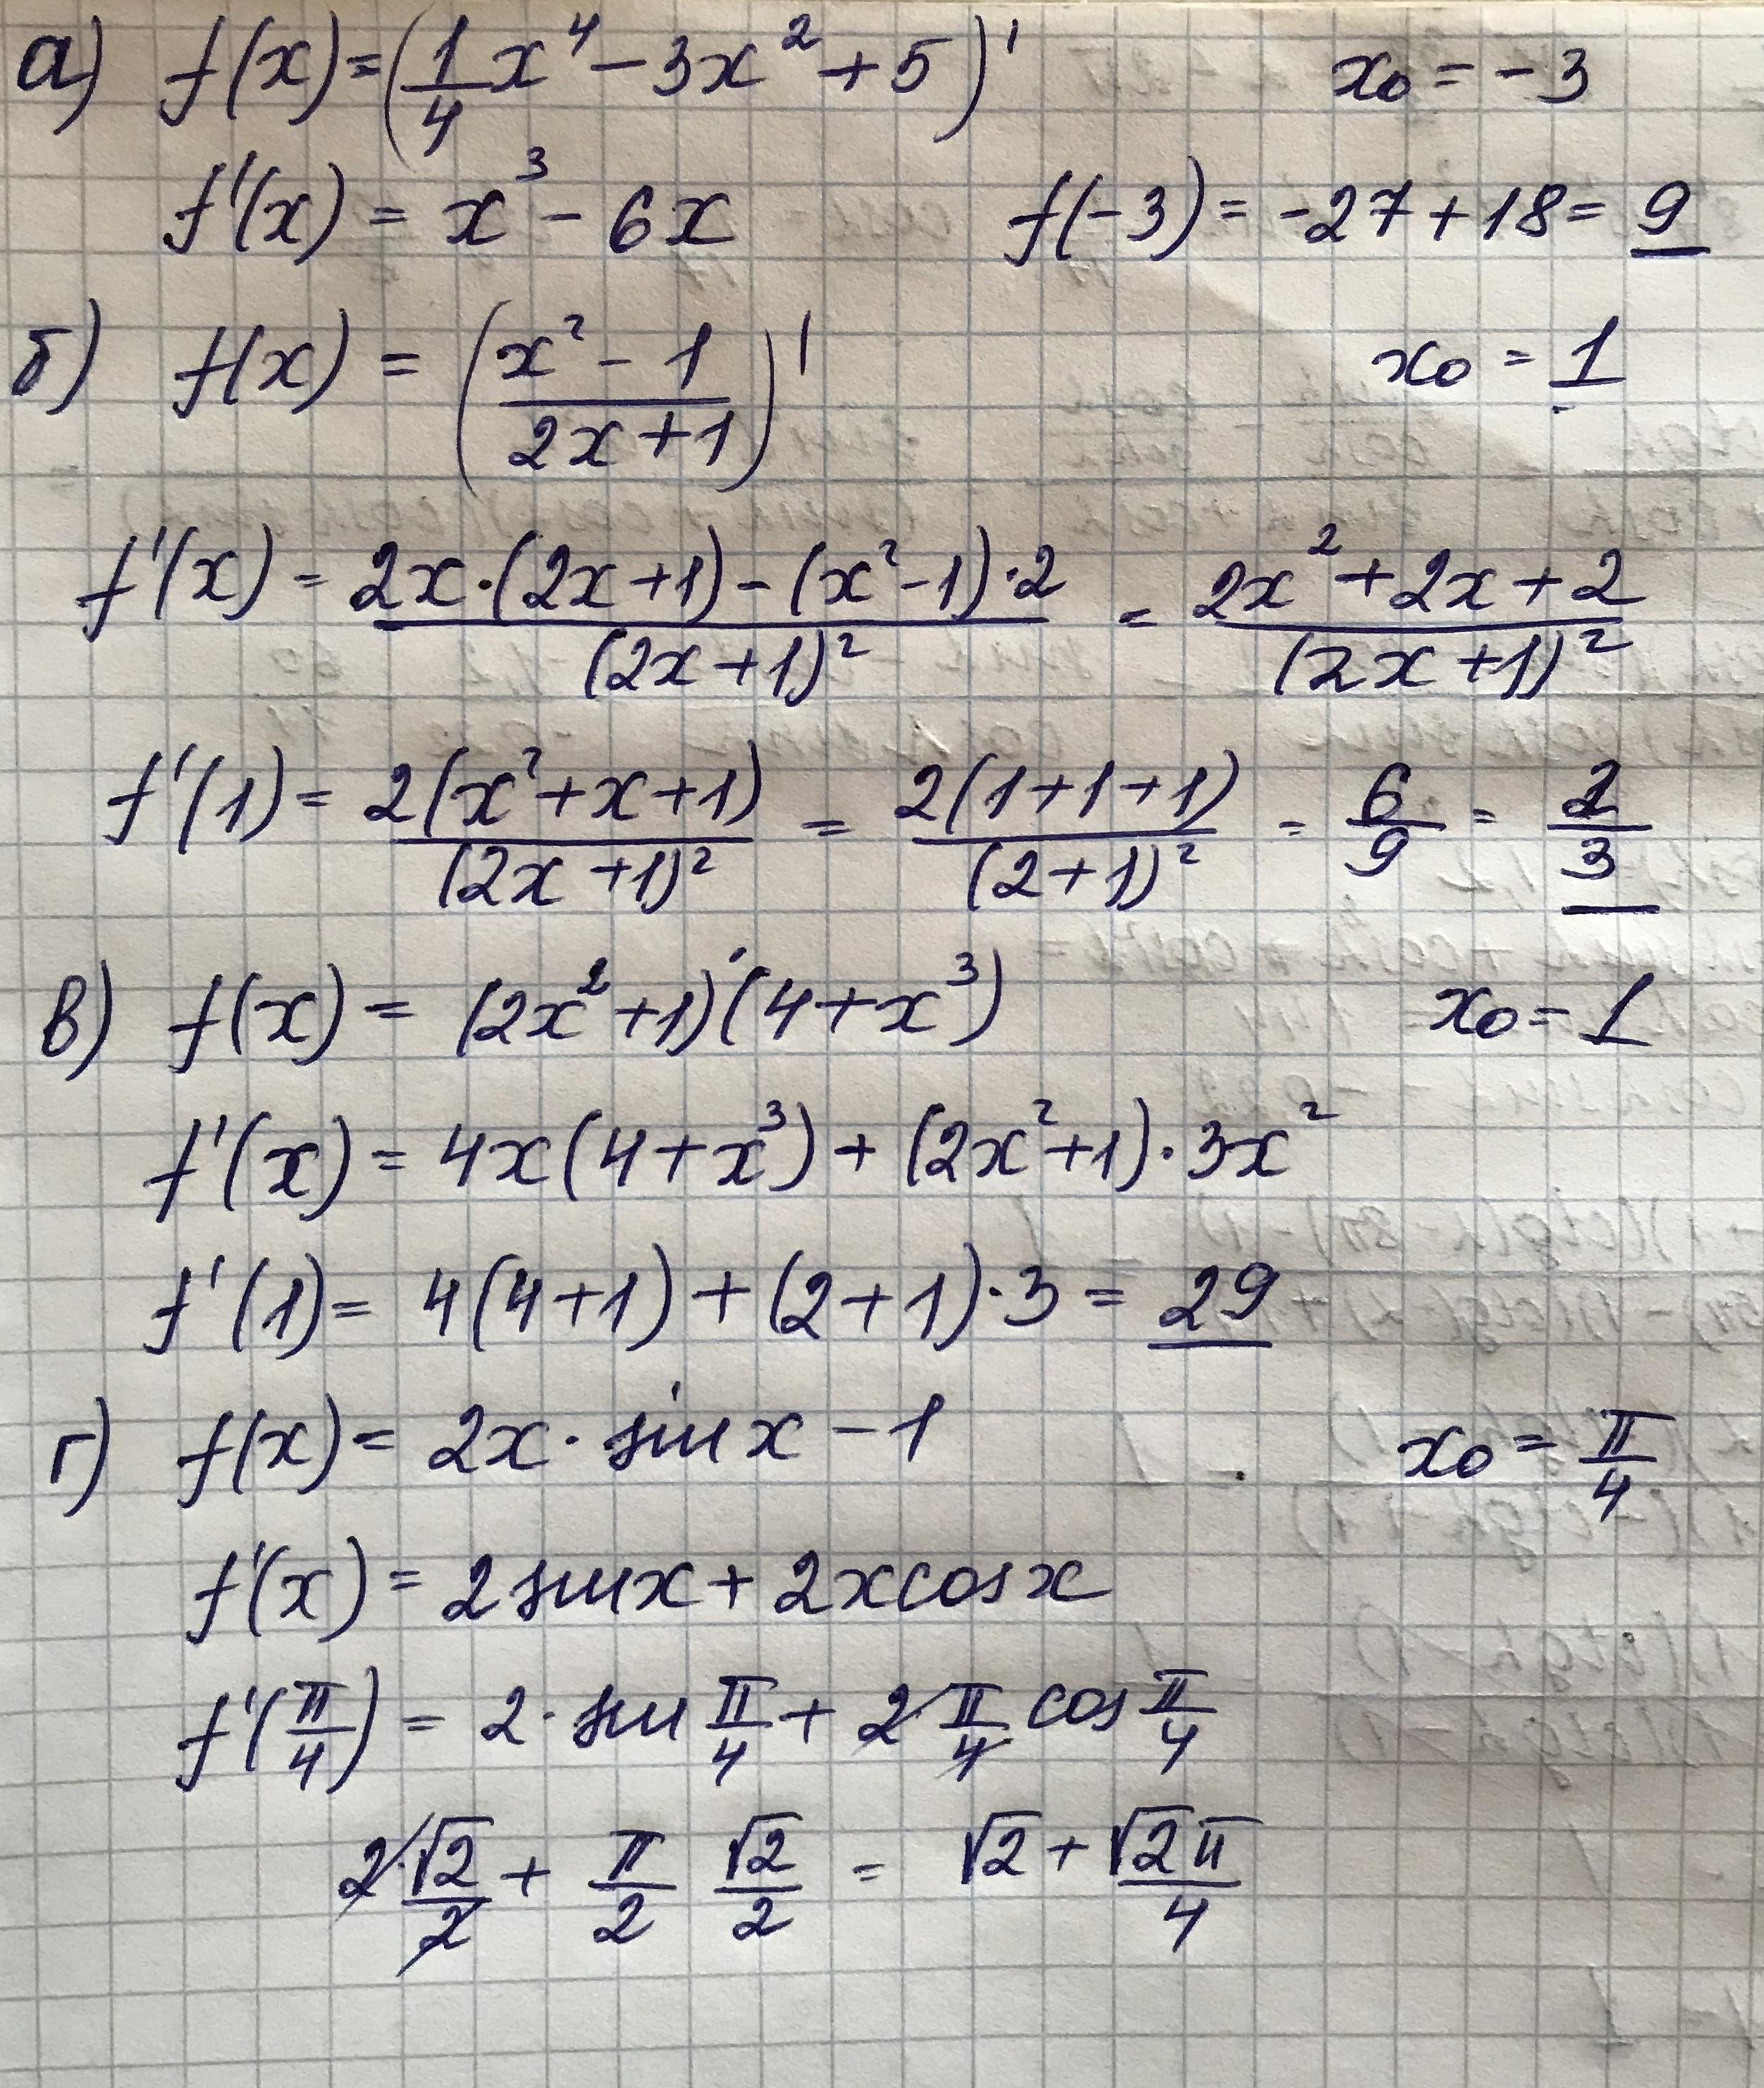 а) f(x)=(1/4 x⁴ − 3x² + 5)′ x₀ = −3
f′(x) = x³ − 6x f(−3) = −27 + 18 = 9
б) f(x) = ((x² − 1)/(2x + 1))′ x₀ = 1
f′(x) = (2x·(2x+1) − (x²−1)·2)/(2x+1)² = (2x² + 2x + 2)/(2x+1)²
f′(1) = 2(x²+x+1)/(2x+1)² = 2(1+1+1)/(2+1)² = 6/9 = 2/3
в) f(x) = (2x²+1)·(4+x³) x₀ = 1
f′(x) = 4x(4+x³) + (2x²+1)·3x²
f′(1) = 4(4+1) + (2+1)·3 = 29
г) f(x) = 2x · sin x − 1 x₀ = π/4
f′(x) = 2 sin x + 2x cos x
f′(π/4) = 2· sin π/4 + 2· π/4 cos π/4
2·√2/2 + π/2 √2/2 = √2 + √2π/4